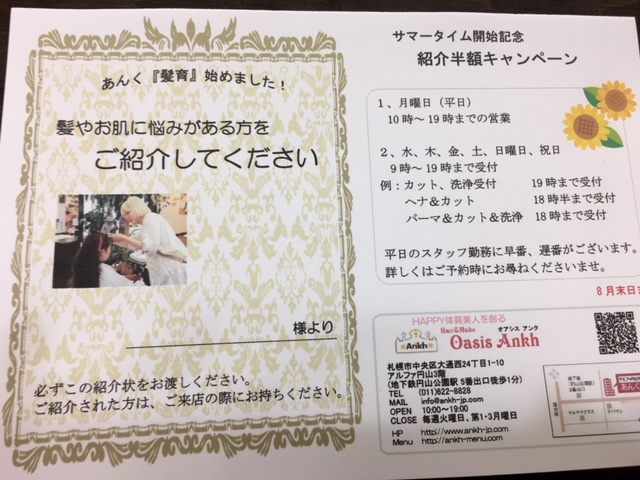 あんく『髪育』始めました!
髪やお肌に悩みがある方を
ご紹介してください
様より
必ずこの紹介状をお渡しください。
ご紹介された方は、ご来店の際にお持ちください。
サマータイム開始記念
紹介半額キャンペーン
1、月曜日(平日)
10時~19時までの営業
2、水、木、金、土、日曜日、祝日
9時~19時まで受付
例:カット、洗浄受付 19時まで受付
ヘナ&カット 18時半まで受付
パーマ&カット&洗浄 18時まで受付
平日のスタッフ勤務に早番、遅番がございます。
詳しくはご予約時にお尋ねくださいませ。
8月末日
HAPPY体質美人を創る
Ankh
Hair&Make オアシス アンク
Oasis Ankh
札幌市中央区大通西24丁目1-10
アルファ円山3階
(地下鉄円山公園駅 5番出口徒歩1分)
TEL (011)622-8828
MAIL info@ankh-jp.com
OPEN 10:00~19:00
CLOSE 毎週火曜日、第1・3月曜日
HP http://ankh-jp.com
Menu http://ankh-menu.com
マルヤマクラス